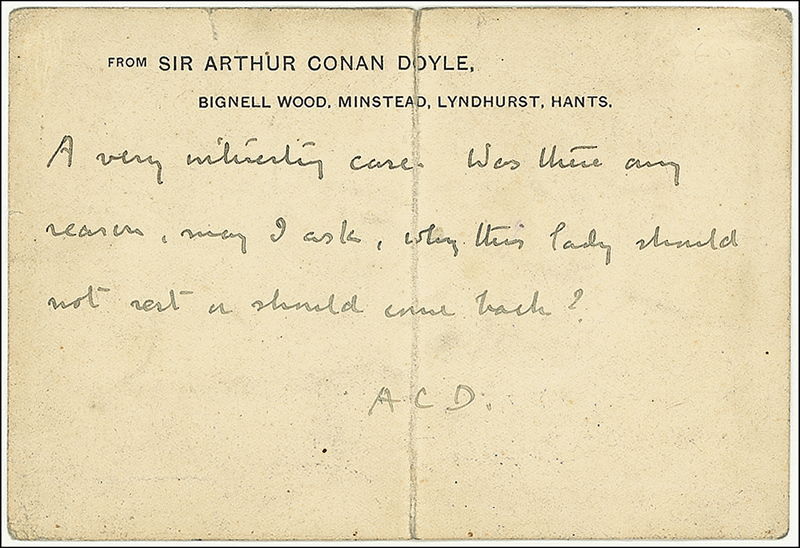 FROM SIR ARTHUR CONAN DOYLE,
BIGNELL WOOD, MINSTEAD, LYNDHURST, HANTS.
A very interesting case. Was there any
reason, may I ask, why this lady should
not rest or should come back?
A C D.